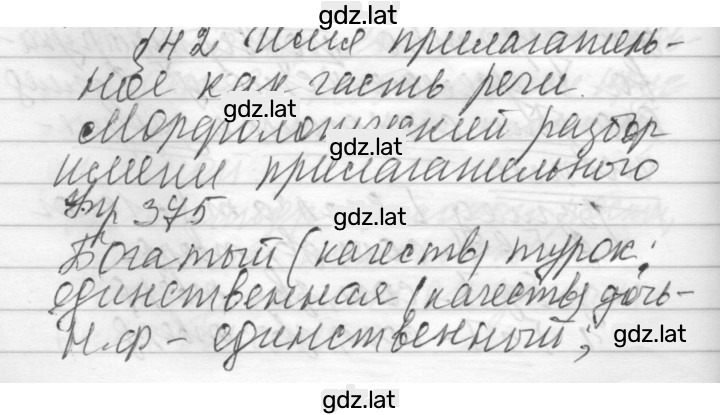 gdz.lat
§42 Имя прилагатель-
ное как часть речи.
gdz.lat
Морфологический разбор
gdz.lat
имени прилагательного
Упр 375
gdz.lat
Богатый (качеств) турок;
единственная (качеств) дочь-
Н.ф - единственный;
gdz.lat
gdz.lat